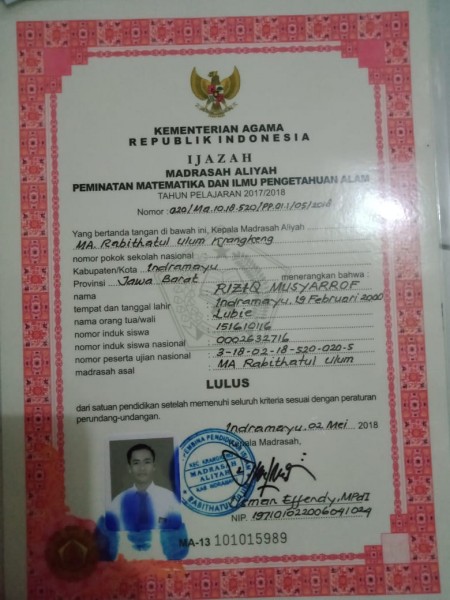 KEMENTERIAN AGAMA
REPUBLIK INDONESIA
IJAZAH
MADRASAH ALIYAH
PEMINATAN MATEMATIKA DAN ILMU PENGETAHUAN ALAM
TAHUN PELAJARAN 2017/2018
Nomor : 020/Ma.10.18.520/PP.01.1/05/2018
Yang bertanda tangan di bawah ini, Kepala Madrasah Aliyah
MA. Rabithatul Ulum Krangkeng
nomor pokok sekolah nasional
Kabupaten/Kota Indramayu
Provinsi Jawa Barat menerangkan bahwa :
nama RIZIQ MUSYARROF
tempat dan tanggal lahir Indramayu, 19 Februari 2000
nama orang tua/wali Lubie
nomor induk siswa 151610116
nomor induk siswa nasional 0002632716
nomor peserta ujian nasional 3-18-02-18-520-020-5
madrasah asal MA Rabithatul Ulum
LULUS
dari satuan pendidikan setelah memenuhi seluruh kriteria sesuai dengan peraturan
perundang-undangan.
Indramayu, 02 Mei 2018
Kepala Madrasah,
MADRASAH
ALIYAH
Effendy, MPdI
NIP. 197101022006041024
MA-13 101015989